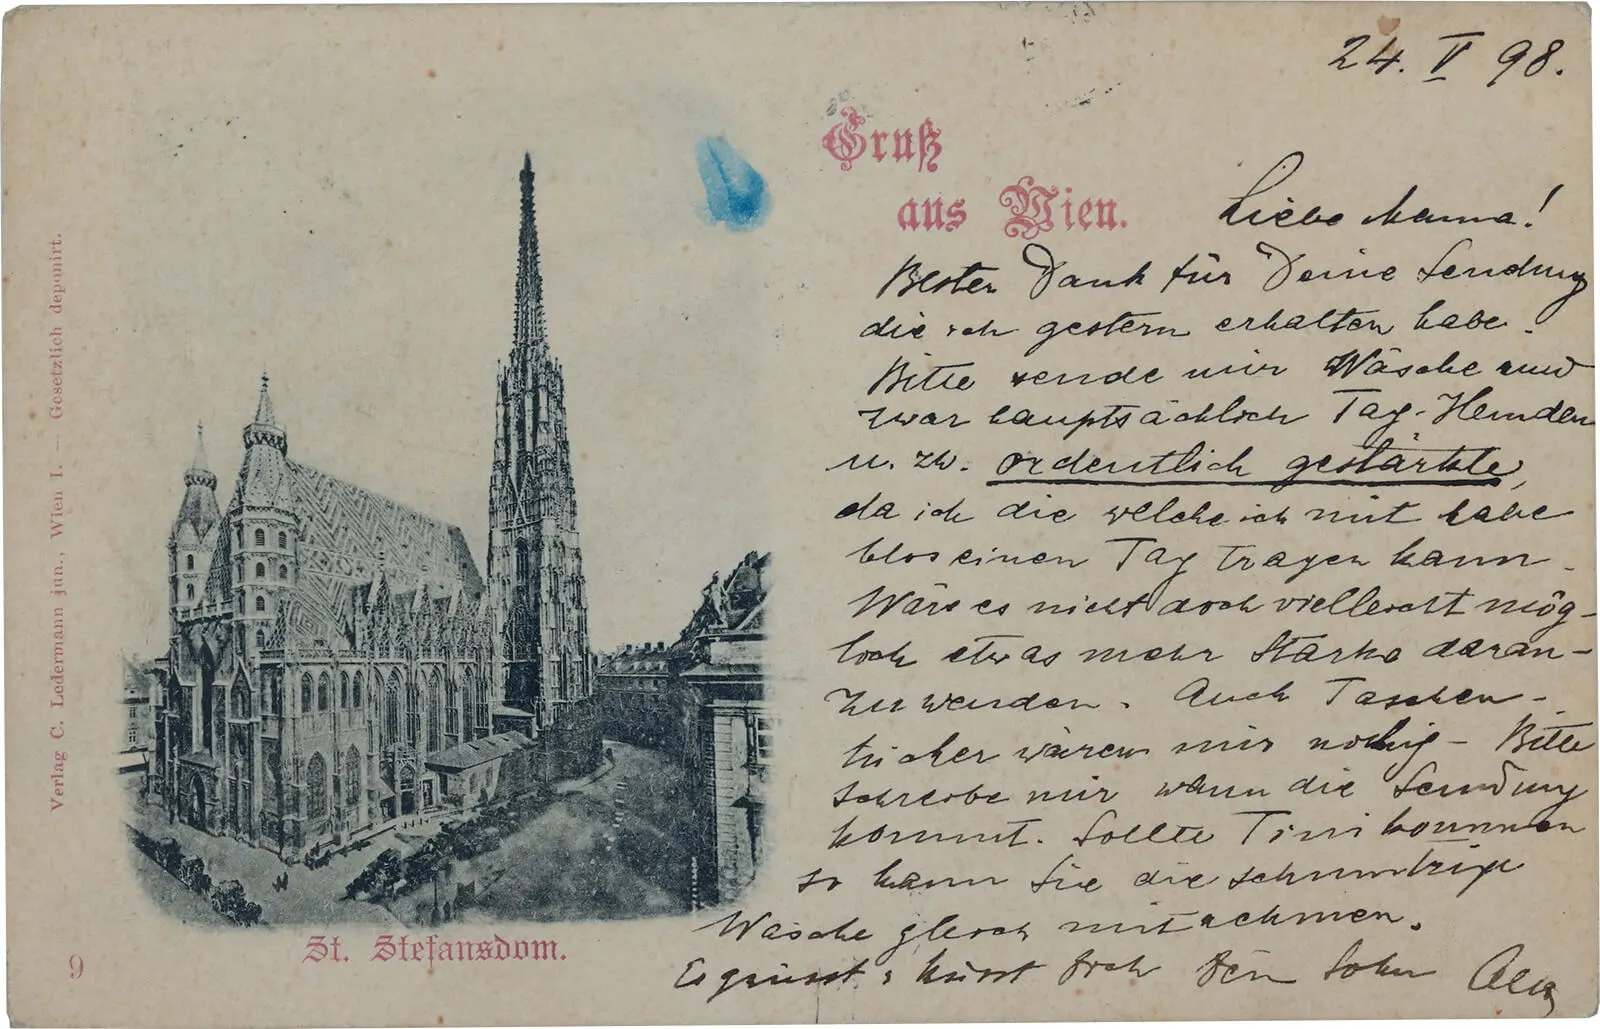 24. V 98.
Gruß
aus Wien.
Liebe Mama!
Besten Dank für Deine Sendung
die ich gestern erhalten habe.
Bitte sende mir Wäsche und
zwar hauptsächlich Tag-Hemden
u. zw. ordentlich gestärkte,
da ich die welche ich mit habe
blos einen Tag tragen kann.
Wäre es nicht doch vielleicht mög-
lich etwas mehr Stärke daran-
zuwenden. Auch Taschen-
tücher wären mir nöthig – Bitte
schreibe mir wann die Sendung
kommt. Sollte Tini kommen
so kann Sie die schmutzige
Wäsche gleich mitnehmen.
Es grüsst & küsst Dich Dein Sohn
St. Stefansdom.
9
Verlag C. Ledermann jun., Wien I. — Gesetzlich deponirt.